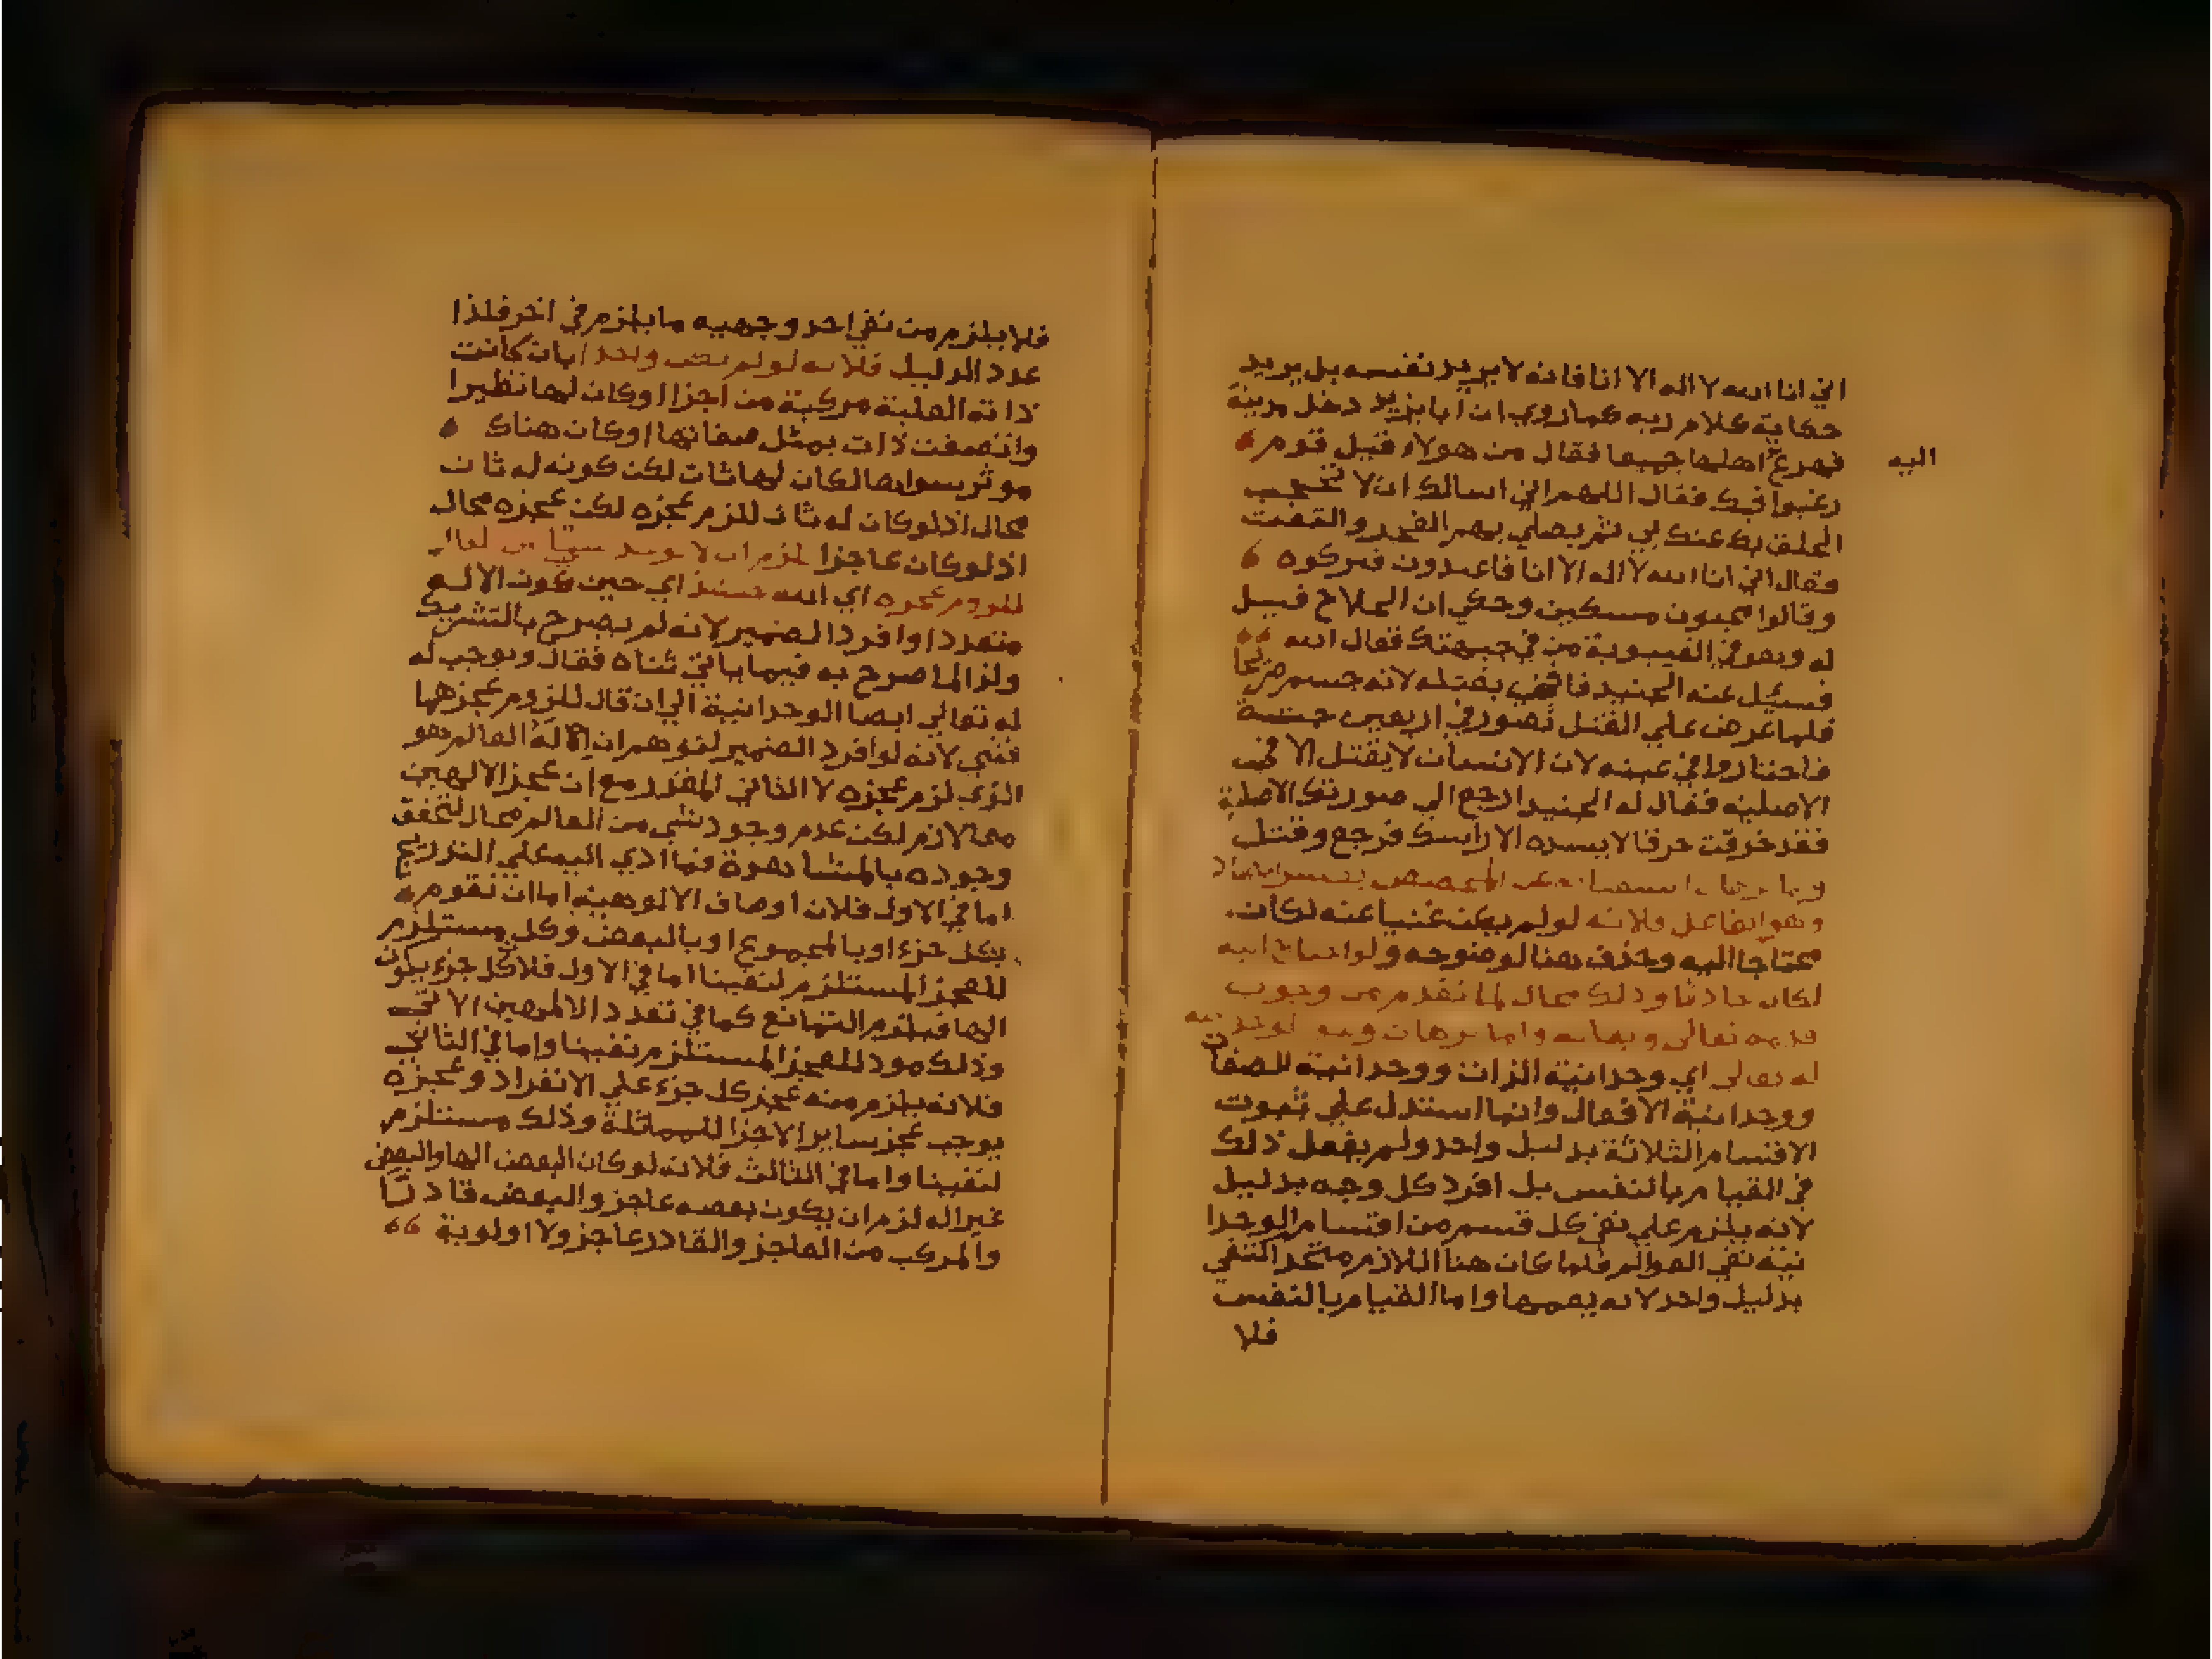 اني انا الله لا اله الا انا فانه لا يريد نفسه بل يريد
حكاية كلام ربه كما روي ان ابا يزيد دخل مدينة
فهرع اهلها جميعا فقال من هولاء قيل قوم
اليه
رغبوا فيك فقال اللهم اني اسالك ان لا تحجب
الخلق بك عنك بي ثم يصلي بهم الفجر والتفت
فقال اني انا الله لا اله الا انا فاعبدون فتركوه
وقالوا مجنون مسكين وحكي ان الحلاج قيل
له وهو في الغيبوبة من في جبهتك فقال الله
فسئل عنه الجنيد فافتي بقتله لانه جسم
فلما عرض علي القتل تصور في اربعين جثة
فاحتاروا في عينه لان الانسان لا يقتل الا في
الاصلية فقال له الجنيد ارجع الي صورتك الاصلية
فقد خرقت خرقا لا يسده الا راسك فرجع وقتل
واما برهان استغنائه عن المخصص
وهو الفاعل فلانه لو لم يكن غنيا عنه لكان
محتاجا اليه وحذف هنا لوضوحه ولو احتاج اليه
لكان حادثا وذلك محال لما تقدم من وجوب
قدمه تعالى وبقائه واما برهان وجوب الوحدانية
له تعالى اي وحدانية الذات ووحدانية الصفات
ووحدانية الافعال وانما استدل علي ثبوت
الاقسام الثلاثة بدليل واحد ولم يفعل ذلك
في القيام بالنفس بل افرد كل وجه بدليل
لانه يلزم علي نفي كل قسم من اقسام الوحدا
نية نفي العوالم فلما كان هنا اللازم متحد النفي
بدليل واحد لانه يعمها واما القيام بالنفس
فلا
فلا يلزم من نفي احد وجهيه ما يلزم في اخر فلذا
عدد الدليل فلانه لو لم يكن واحدا بان كانت
ذاته العلية مركبة من اجزا او كان لها نظيرا
واتصفت ذات بمثل صفاتها او كان هناك
موثر سواها لكان لها ثان لكن كونه له ثان
محال اذ لو كان له ثان للزم عجزه لكن عجزه محال
اذ لو كان عاجزا لزم ان لا يوجد شيا من العالم
للزوم عجزه اي الله حينئذ اي حين كون الاله
متعددا وافرد الضمير لانه لم يصرح بالتشريك
ولذا لما صرح به فيما ياتي ثناه فقال ويوجب له
له تعالي ايضا الوحدانية الي ان قال للزوم عجزهما
فثني لانه لو افرد الضمير لتوهم ان اله العالم هو
الذي لزم عجزه لا الثاني المقدر مع ان عجز الالهين
معا لازم لكن عدم وجود شي من العالم محال لتحقق
وجوده بالمشاهدة فما ادي اليه علي التدريج
اما في الاول فلان اوصاف الالوهية اما ان تقوم
بكل جزء او بالمجموع او بالبعض وكل مستلزم
للعجز المستلزم لنفينا اما في الاول فلا كل جزء يكون
الها فيلزم التمانع كما في تعدد الالهين الاتي
وذلك مود للعجز المستلزم نفينا واما في الثاني
فلانه يلزم منه عجز كل جزء علي الانفراد وعجزه
يوجب عجز ساير الاجزا للمماثلة وذلك مستلزم
لنفينا واما في الثالث فلانه لو كان البعض الها والبعض
غير اله لزم ان يكون بعضه عاجز والبعض قادرا
والمركب من العاجز والقادر عاجز ولا اولوية